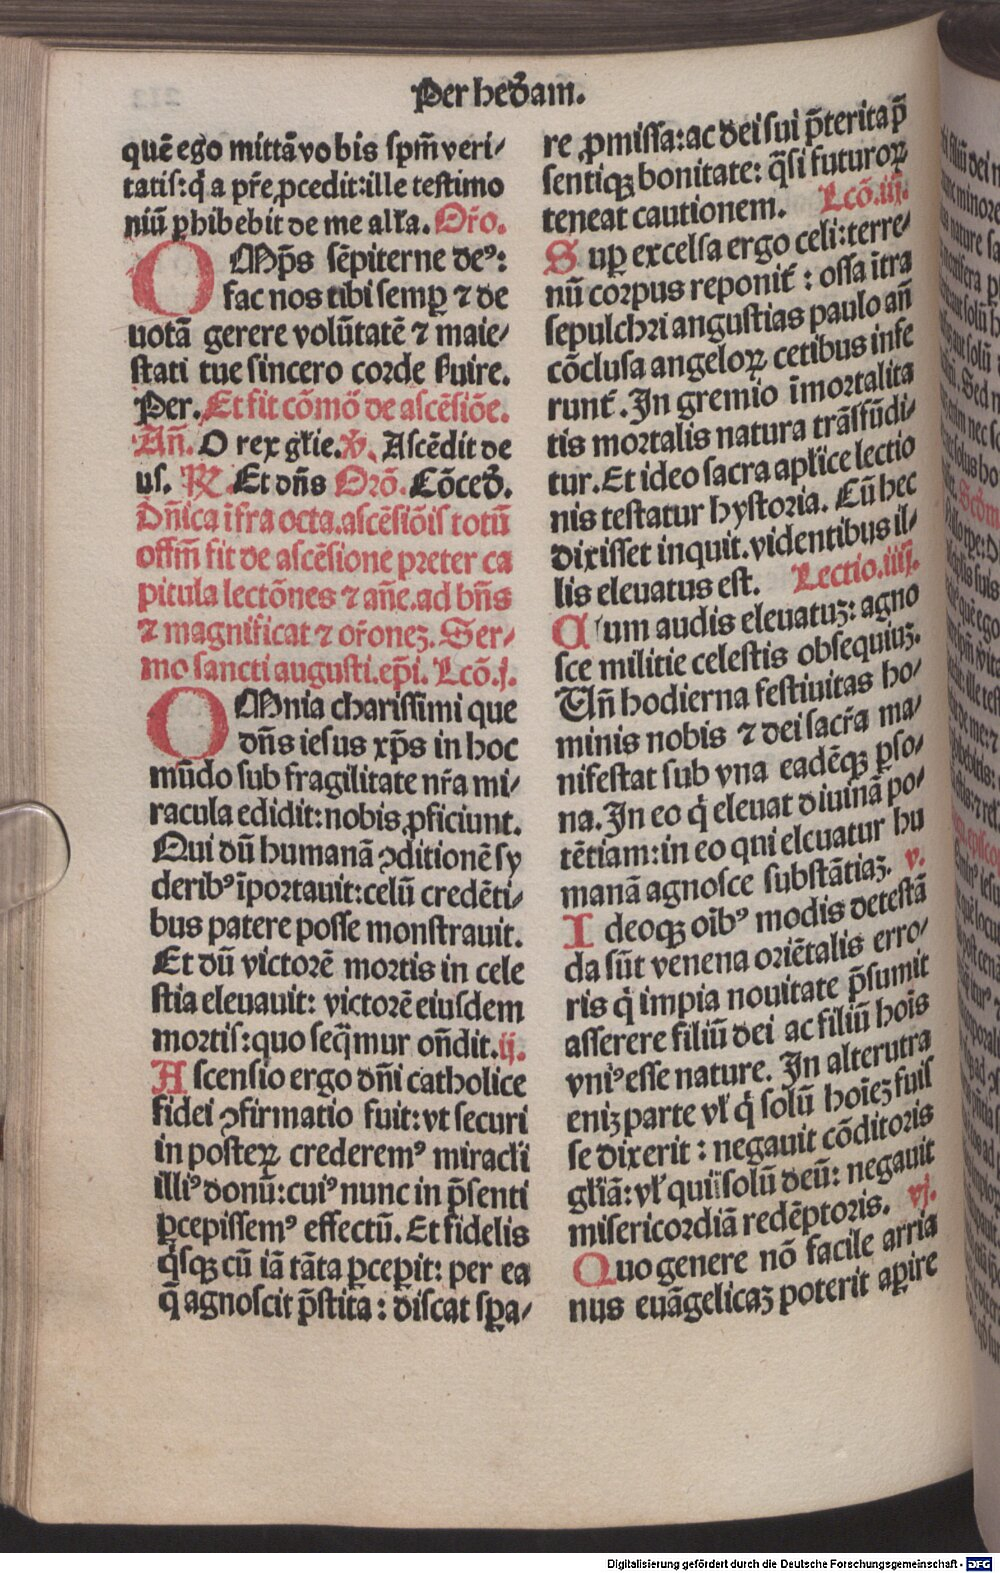 Per hebdam.
quē ego mittā vobis spm̄ veri⸗
tatis: q̇ a pr̄e ꝓcedit: ille testimo
niū ꝑhibebit de me all'a. Or̄o.
OMp̄s sēpiterne deꝰ:
fac nos tibi semꝑ ⁊ de
uotā gerere volūtatē ⁊ maie⸗
stati tue sincero corde ẜuire.
Per. Et fit cōmō de ascēsiōe.
An̄. O rex gl'ie. V̄. Ascēdit de
us. R̄. Et dn̄s Orō. Cōced.
Dn̄ica īfra octa. ascēsiōis totū
offm̄ fit de ascēsione preter ca
pitula lectōnes ⁊ an̄e. ad bn̄s
⁊ magnificat ⁊ or̄oneʒ. Ser⸗
mo sancti augusti. ep̄i. Lcō.j.
OMnia charissimi que
dn̄s iesus xp̄s in hoc
mūdo sub fragilitate nr̄a mi⸗
racula edidit: nobis ꝓficiunt.
Qui dū humanā ꝯditionē sy
deribꝰ īportauit: celū credēti⸗
bus patere posse monstrauit.
Et dū victorē mortis in cele
stia eleuauit: victorē eiusdem
mortis: quo seq̄mur on̄dit. ij.
Ascensio ergo dn̄i catholice
fidei ꝯfirmatio fuit: vt securi
in posteꝝ crederemꝰ miracl'i
illiꝰ donū: cuiꝰ nunc in p̄senti
ꝑcepissemꝰ effectū. Et fidelis
q̇sqꝫ cū iā tāta ꝑceꝑit: per ea
q̄ agnoscit p̄stita: discat sꝑa⸗
re ꝓmissa: ac dei sui p̄terita p̄
sentiqꝫ bonitate: q̄si futuroꝝ
teneat cautionem. Lcō.iij.
Suꝑ excelsa ergo celi: terre⸗
nū corpus reponit᷑: ossa ītra
sepulchri angustias paulo an̄
cōclusa angeloꝝ cetibus infe
runt᷑. In gremio īmortalita
tis mortalis natura trāsfūdi⸗
tur. Et ideo sacra apl'ice lectio
nis testatur hystoria. Cū hec
dixisset inquit. videntibus il⸗
lis eleuatus est. Lectio.iiij.
Cum audis eleuatuʒ: agno
sce militie celestis obsequiuʒ.
Un̄ hodierna festiuitas ho⸗
minis nobis ⁊ dei sacr̄a ma⸗
nifestat sub vna eadēqꝫ ꝑso⸗
na. In eo q̇ eleuat diuinā po⸗
tētiam: in eo qui eleuatur hu
manā agnosce substātiaʒ. v.
Ideoqꝫ oībꝰ modis detestā
da sūt venena oriētalis erro⸗
ris q̇ impia nouitate p̄sumit
asserere filiū dei ac filiū hoīs
vniꝰ esse nature. In alterutra
eniʒ parte vl' q̇ solū hoīeʒ fuis
se dixerit: negauit cōditoris
gl'iā: vl' qui solū deū: negauit
misericordiā redēptoris. vj.
Quo genere nō facile arria
nus euāgelicaʒ poterit aꝑire